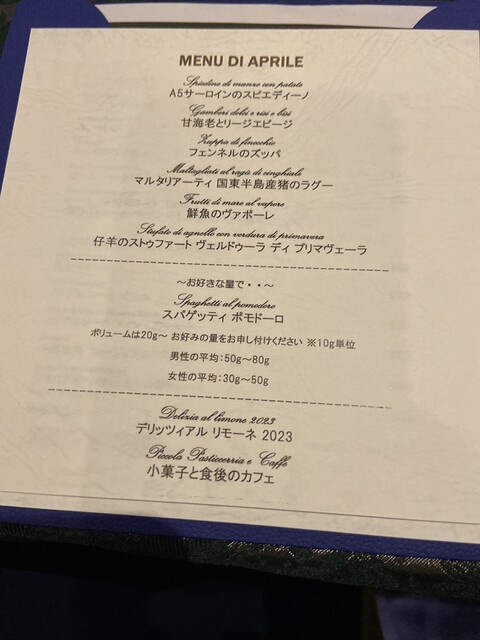 MENU DI APRILE
Spiedino di manzo con patate
A5サーロインのスピエディーノ
Gamberi dolci e risi e bisi
甘海老とリージエビージ
Zuppa di finocchio
フェンネルのズッパ
Maltagliati al ragù di cinghiale
マルタリアーティ 国東半島産猪のラグー
Frutti di mare al vapore
鮮魚のヴァポーレ
Stufato di agnello con verdura di primavera
仔羊のストゥファート ヴェルドゥーラ ディ プリマヴェーラ
～お好きな量で・・～
Spaghetti al pomodoro
スパゲッティ ポモドーロ
ボリュームは20g～ お好みの量をお申し付けください ※10g単位
男性の平均：50g～80g
女性の平均：30g～50g
Delizia al limone 2023
デリッツィアル リモーネ 2023
Piccola Pasticcerria e Caffe
小菓子と食後のカフェ